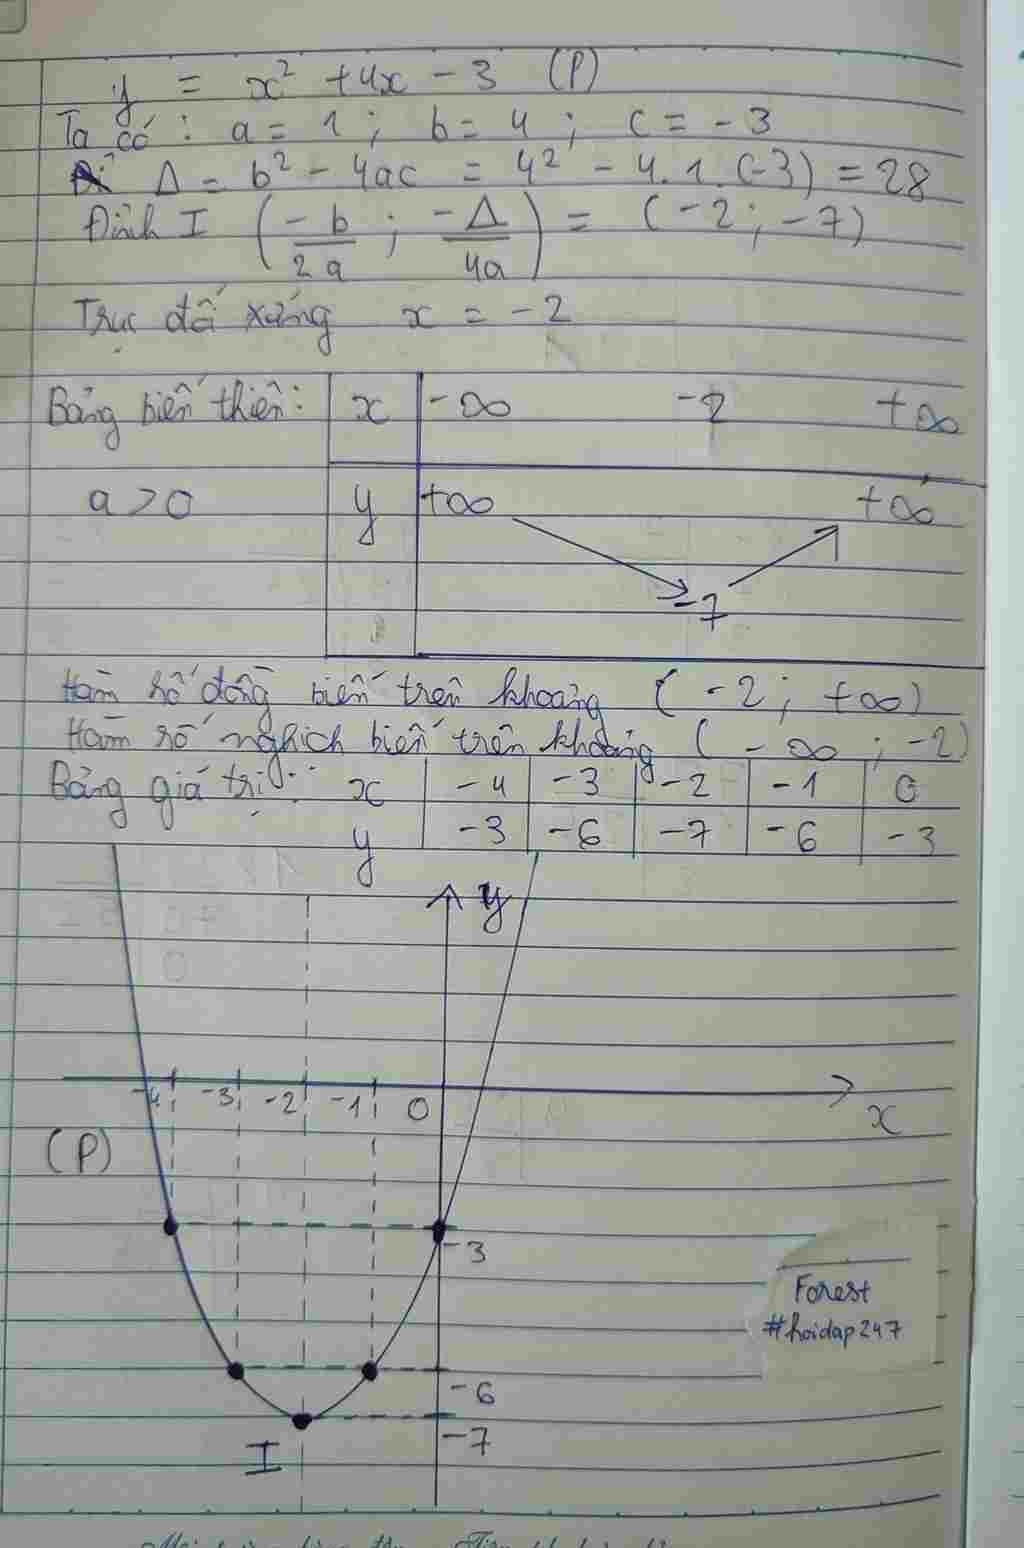 y = x² + 4x - 3 (P)
Ta có : a = 1 ; b = 4 ; c = -3
Δ = b² - 4ac = 4² - 4.1.(-3) = 28
Đỉnh I (-b/2a ; -Δ/4a) = (-2 ; -7)
Trục đối xứng x = -2
Bảng biến thiên: x -∞ -2 +∞
a > 0 y +∞ +∞
-7
Hàm số đồng biến trên khoảng (-2 ; +∞)
Hàm số nghịch biến trên khoảng (-∞ ; -2)
Bảng giá trị: x -4 -3 -2 -1 0
y -3 -6 -7 -6 -3
y
-4 -3 -2 -1 0
x
(P)
-3
Forest
#hoidap247
-6
-7
I